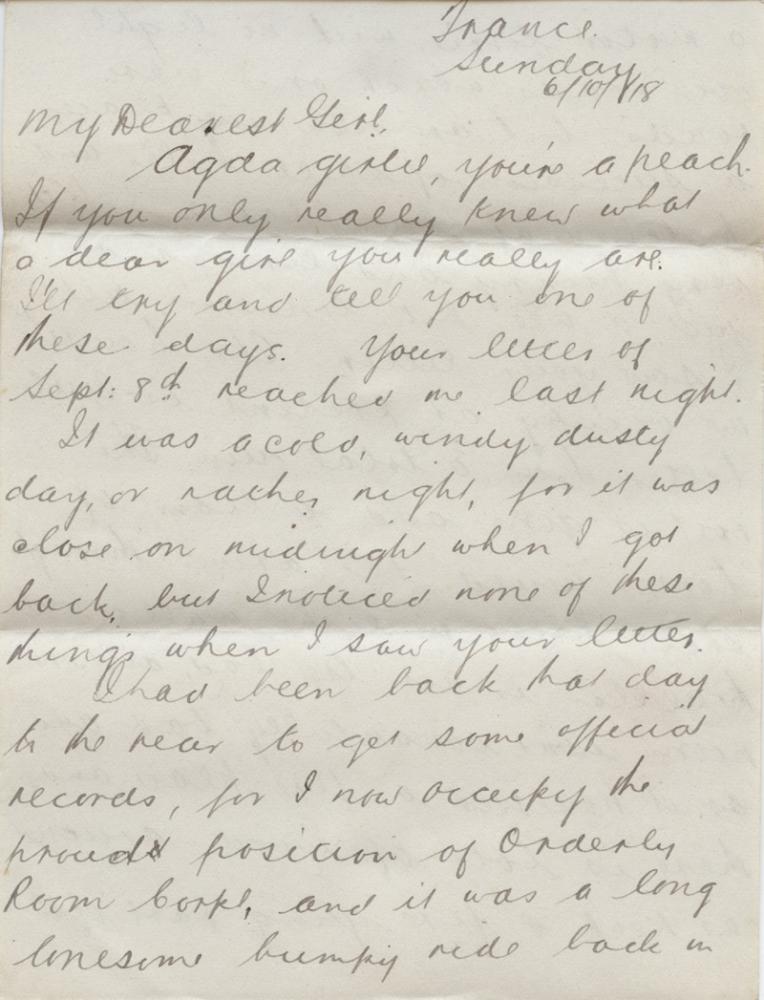 France.
Sunday
6/10/18
My Dearest Girl,
Agda girlie, you're a peach.
If you only really knew what
a dear girl you really are.
I'll try and tell you one of
these days. Your letter of
Sept: 8th reached me last night.
It was a cold, windy dusty
day, or rather night, for it was
close on midnight when I got
back, but I noticed none of these
things when I saw your letter.
I had been back that day
to the rear to get some official
records, for I now occupy the
proud position of Orderly
Room Corpl, and it was a long
lonesome bumpy ride back in